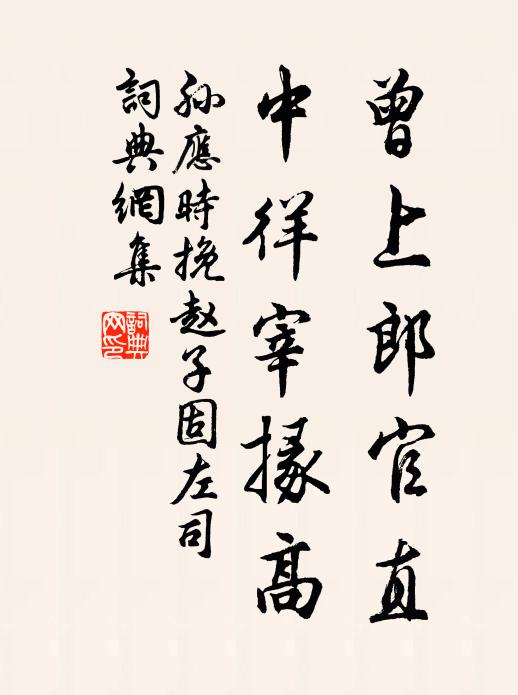 曾上郎官直
中徉宰掾高
孙應時挽赵子固左司
詞典網集
詞典網印